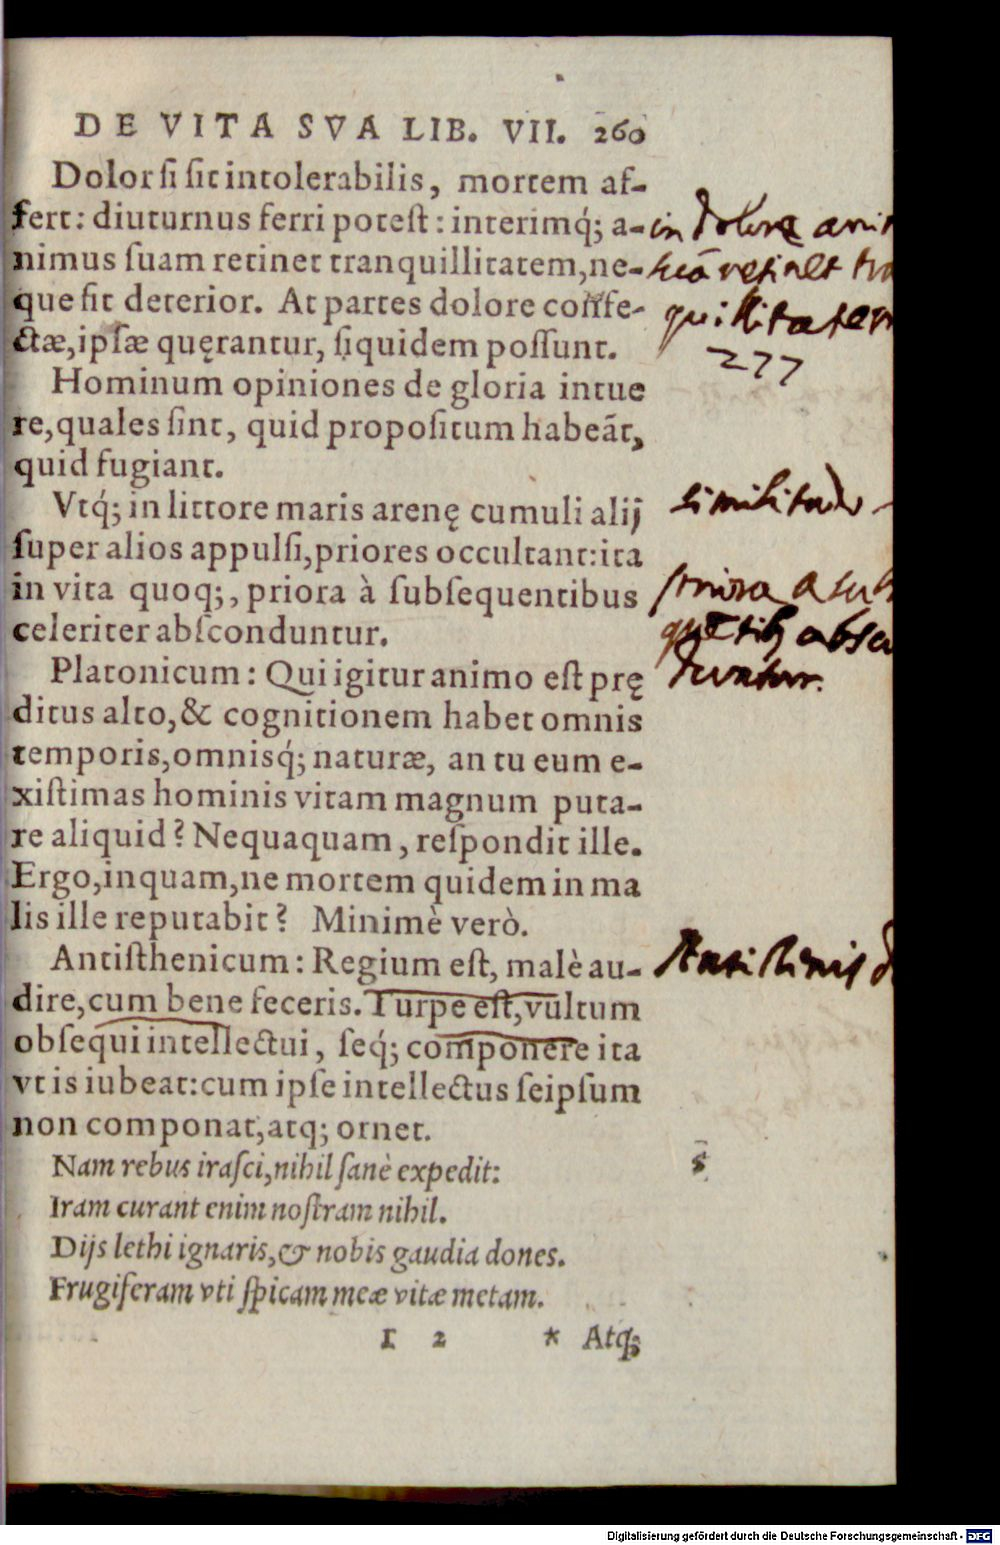 DE VITA SVA LIB. VII. 260
Dolor ſi ſit intolerabilis, mortem af-
fert: diuturnus ferri poteſt: interimq́; a-
nimus ſuam retinet tranquillitatem, ne-
que fit deterior. At partes dolore confe-
ctæ, ipſæ quęrantur, ſiquidem poſſunt.
Hominum opiniones de gloria intue
re, quales ſint, quid propoſitum habeãt,
quid fugiant.
Vtq́; in littore maris arenę cumuli alij
ſuper alios appulſi, priores occultant: ita
in vita quoq;, priora à ſubſequentibus
celeriter abſconduntur.
Platonicum: Qui igitur animo eſt prę
ditus alto, & cognitionem habet omnis
temporis, omnisq́; naturæ, an tu eum e-
xiſtimas hominis vitam magnum puta-
re aliquid? Nequaquam, reſpondit ille.
Ergo, inquam, ne mortem quidem in ma
lis ille reputabit? Minimè verò.
Antiſthenicum: Regium eſt, malè au-
dire, cum bene feceris. Turpe eſt, vultum
obſequi intellectui, ſeq́; componere ita
vt is iubeat: cum ipſe intellectus ſeipſum
non componat, atq; ornet.
Nam rebus iraſci, nihil ſanè expedit:
Iram curant enim noſtram nihil.
Dijs lethi ignaris, & nobis gaudia dones.
Frugiferam vti ſpicam meæ vitæ metam.
I 2 * Atq;
in dolore
retinet
quillitatem
277
similitudo
priora a sub
abscu
duntur.
Antisthenis
Digitalisierung gefördert durch die Deutsche Forschungsgemeinschaft - DFG